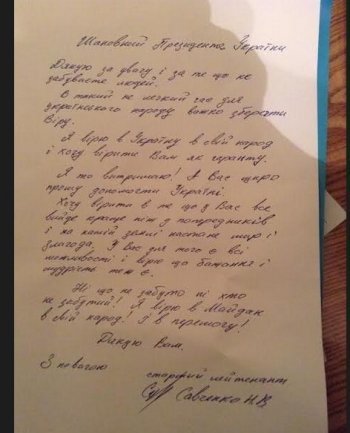 Шановний Президенте України
Дякую за увагу і за те що не
забуваєте людей.
В такий не легкий час для
українського народу важко зберегти
Віру.
Я вірю в Україну в свій народ
і хочу вірити Вам як гаранту.
Я то витримаю! А Вас щиро
прошу допомогти Україні.
Хочу вірити в те що у Вас все
вийде краще ніж у попередників
і на нашій землі настане мир і
злагода. У Вас для того є всі
можливості і вірю що бажання і
мудрість теж є.
Ні що не забуто ні хто
не забутий! Я вірю в Майдан
в свій народ! І в перемогу!
Дякую Вам.
З повагою старший лейтенант
Савченко Н.В